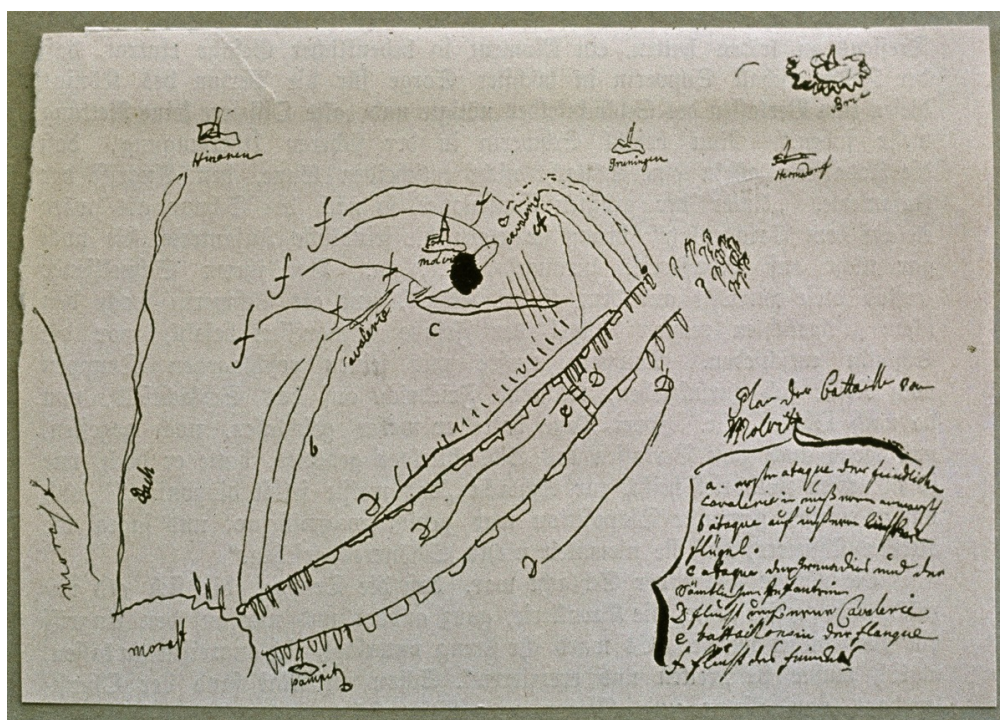 Hünern
Gruningen
Hermsdorf
f
cavalerie
a
molwitz
f
f
C
cavalerie
b
D
D
D
D
e
Bach
morast
morast
pampitz
Plan der battaille von
Molwitz
a. erste ataque der feindlichen
cavalerie in unsserem anmarsch
b ataque auf unsseren
flügel.
c ataque der Grenadirs und der
sämtlichen Infanterie
D flucht unsserer Cavalerie
e battaillons in der flanque
f. flucht des feindes